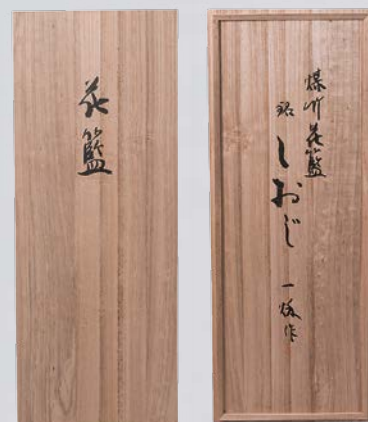 花籃
煤竹花籃
銘 しおじ
一作